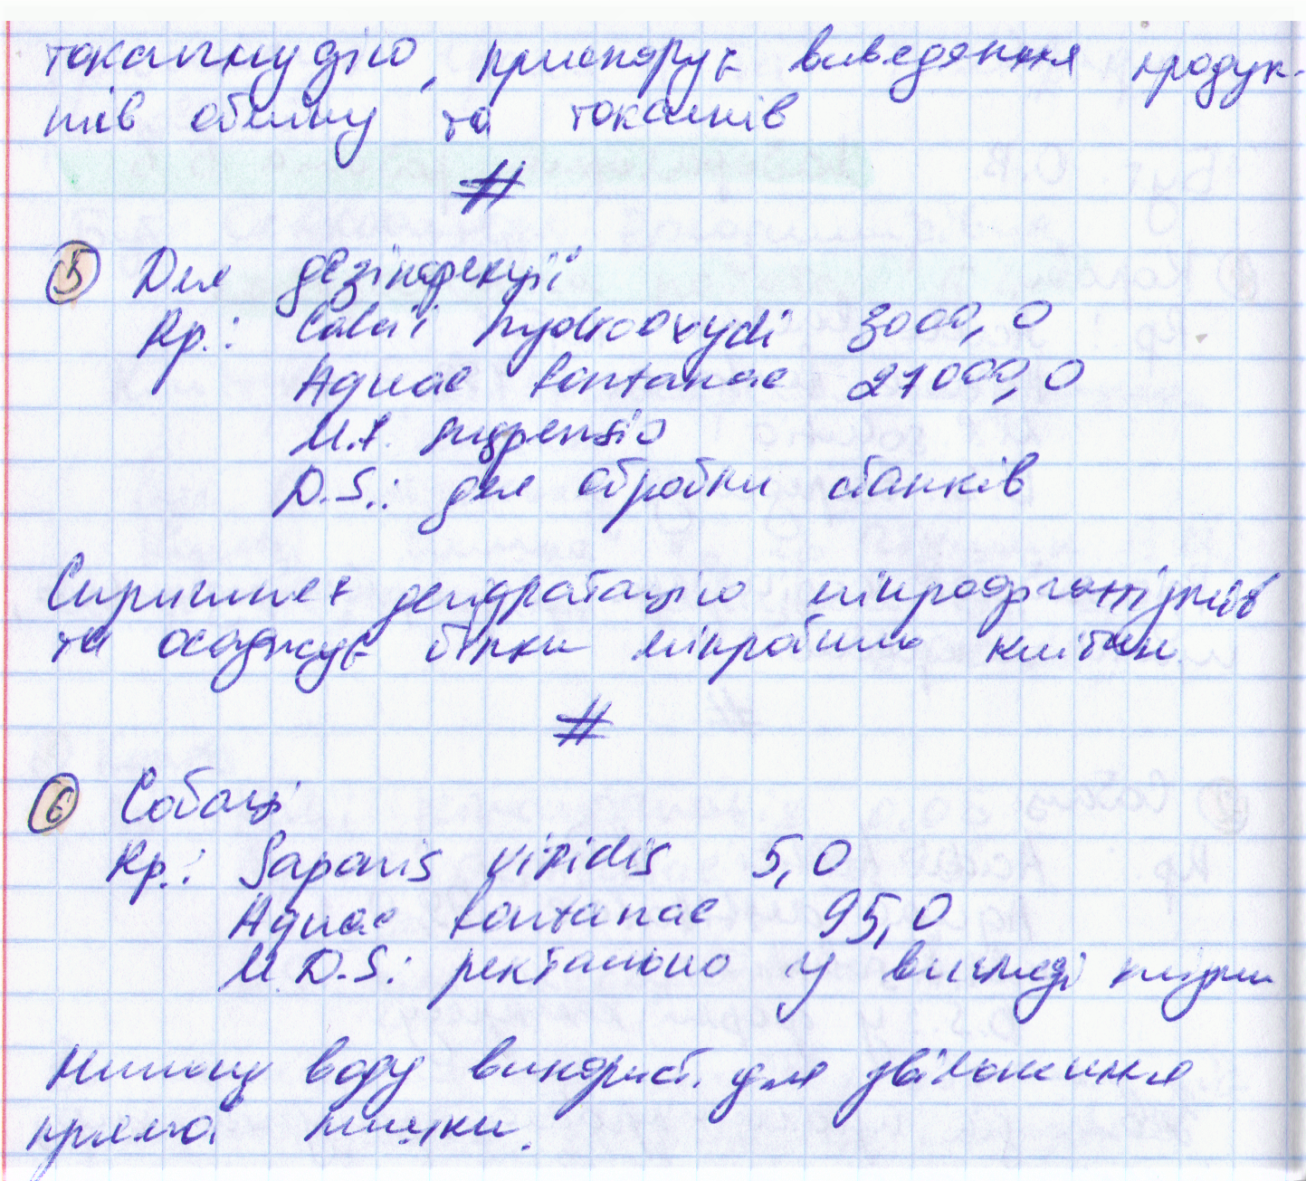 токсичну дію, прискорує виведення продук-
тів обміну та токсинів
#
5 Для дезінфекції
Rp.: Calcii hydrooxydi 3000,0
Aquae fontanae 27000,0
M.f. suspensio
D.S.: для обробки станків
Спричиняє дегідратацію мікроорганізмів
та осаджує білки мікробних клітин
#
6 Собаці
Rp.: Saponis viridis 5,0
Aquae fontanae 95,0
M.D.S.: ректально у вигляді клізми
Мильну воду використ. для звільнення
прямої кишки.